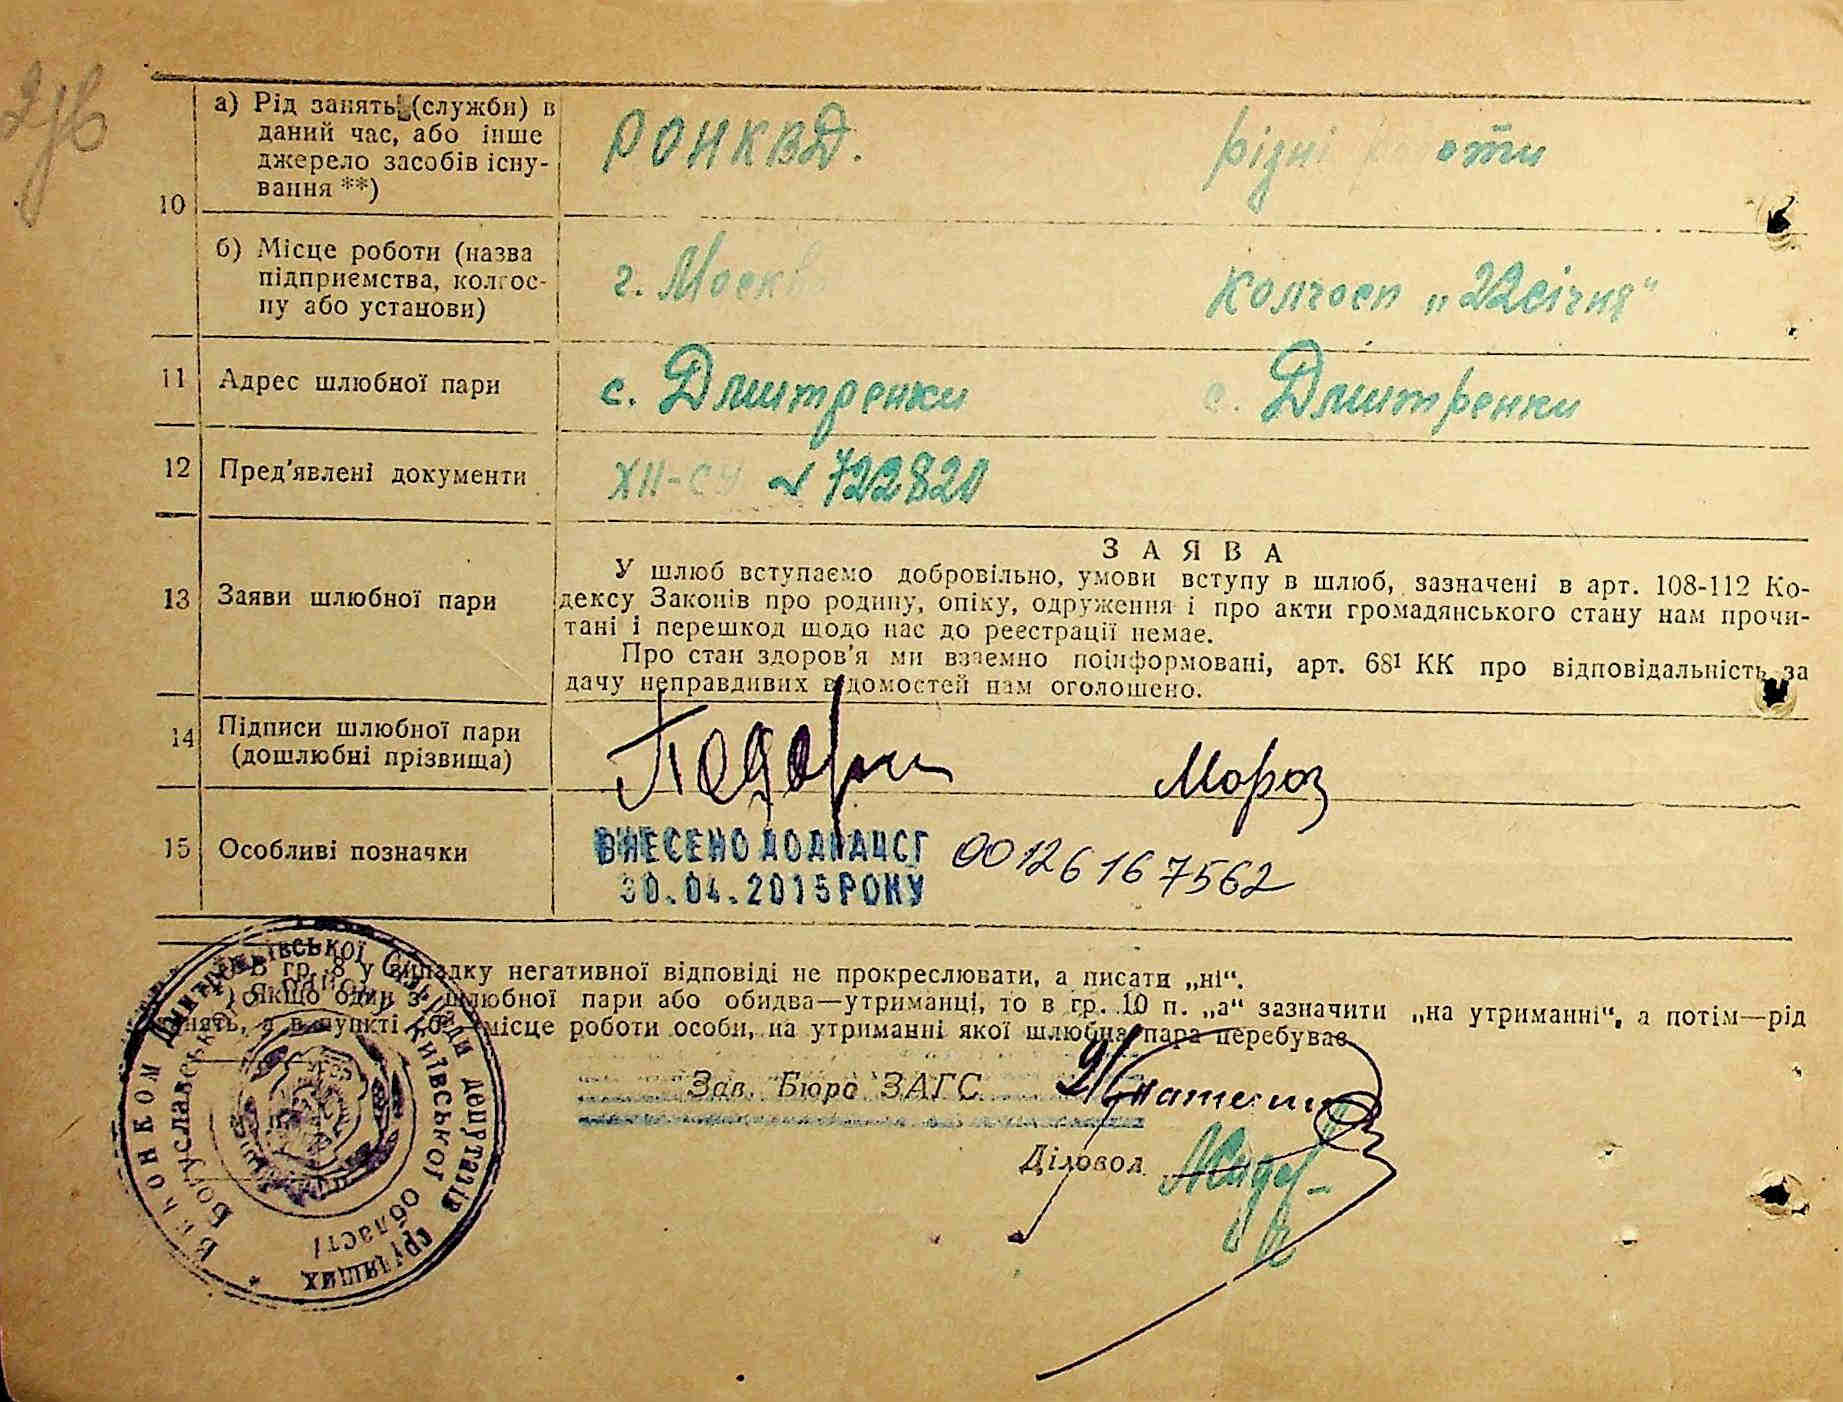 10
а) Рід занять (служби) в
даний час, або інше
джерело засобів існу-
вання **)
РОНКВД.
різні роботи
б) Місце роботи (назва
підприємства, колгос-
пу або установи)
г. Москва
колгосп „22 січня“
11 Адрес шлюбної пари
с. Дмитренки
с. Дмитренки
12 Пред'явлені документи
№ 722820
13 Заяви шлюбної пари
ЗАЯВА
У шлюб вступаємо добровільно, умови вступу в шлюб, зазначені в арт. 108-112 Ко-
дексу Законів про родину, опіку, одруження і про акти громадянського стану нам прочи-
тані і перешкод щодо нас до реєстрації немає.
Про стан здоров'я ми взаємно поінформовані, арт. 68¹ КК про відповідальність за
дачу неправдивих відомостей нам оголошено.
14 Підписи шлюбної пари
(дошлюбні прізвища)
Мороз
15 Особливі позначки
ВНЕСЕНО ДО ДРАЦСГ
30.04.2015 РОКУ
00126167562
В гр. 8 у випадку негативної відповіді не прокреслювати, а писати „ні“.
Якщо один з шлюбної пари або обидва—утриманці, то в гр. 10 п. „а“ зазначити „на утриманні“, а потім—рід
занять, а в пункті „б“—місце роботи особи, на утриманні якої шлюбна пара перебуває
Зав. Бюро ЗАГС
Діловод
Виконком Дмитренківської Сіль. Ради депутатів трудящих
Богуславського району Київської області